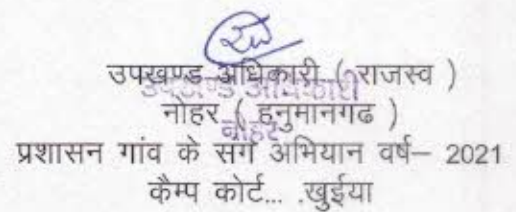 उपखण्ड अधिकारी ( राजस्व )
नोहर ( हनुमानगढ )
प्रशासन गांव के संग अभियान वर्ष– 2021
कैम्प कोर्ट... .खुईया
उपखण्ड अधिकारी
नोहर